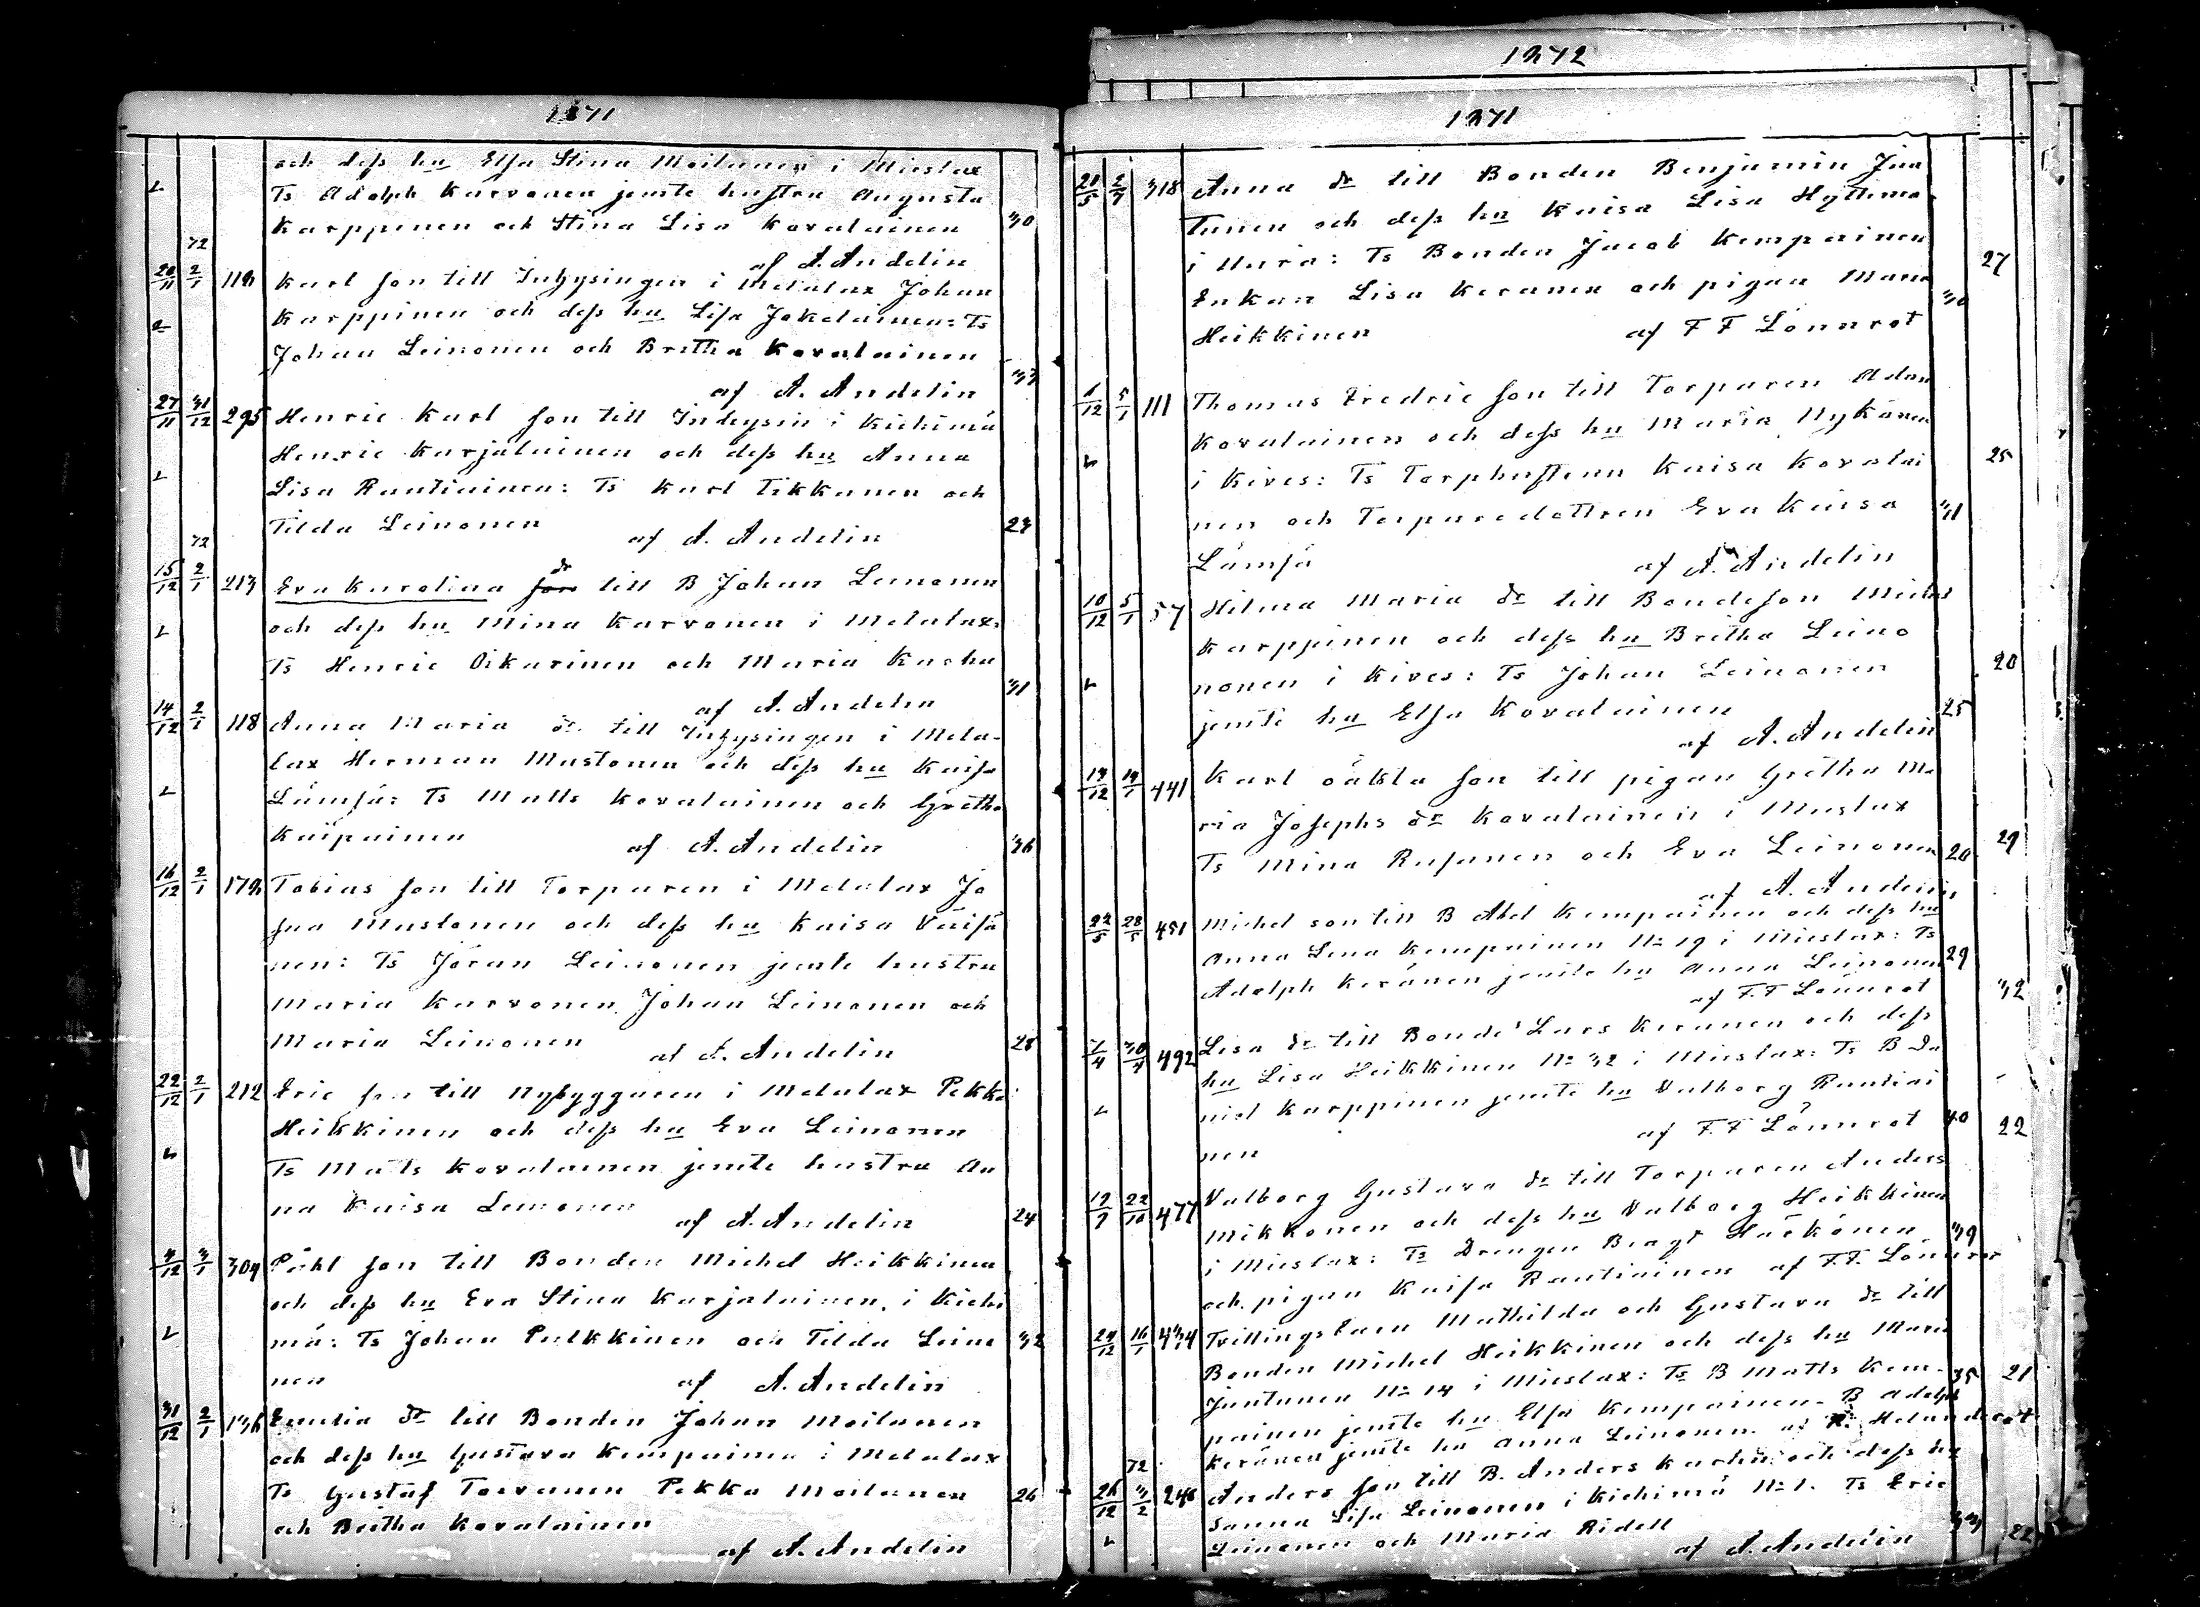 1871
och dess hu Elsa Stina Moilanen i Mieslax
Ts Adolph Karvonen jemte hustru Augusta
Karppinen och Stina Lisa Kovalainen 30
af A. Andelin
20/11 72 2/1 119 Karl son till Inhysingen i Melalax Johan
Karppinen och dess hu Lisa Jokelainen: Ts
Johan Leinonen och Britha Kovalainen 33
af A. Andelin
27/11 31/12 295 Henric Karl son till Inhysin i Kiehimä
Henric Karjalainen och dess hu Anna
Lisa Rautiainen: Ts Karl Tikkanen och
Tilda Leinonen 23
af A. Andelin
15/12 72 2/1 213 Eva Karolina dr till B Johan Leinonen
och dess hu Mina Karvonen i Melalax:
Ts Henric Oikarinen och Maria Karhu 31
af A. Andelin
14/12 2/1 118 Anna Maria dr till Inhysingen i Mela-
lax Herman Mustonen och dess hu Kaisa
Lämsä: Ts Matts Kovalainen och Gretha
Kaipainen af A. Andelin 36
16/12 2/1 179 Tobias son till Torparen i Melalax Jo
sua Mustonen och dess hu Kaisa Väisä
nen: Ts Jöran Leinonen jemte hustru
Maria Karvonen, Johan Leinonen och
Maria Leinonen af A. Andelin 28
22/12 2/1 212 Eric son till Nybyggaren i Melalax Pekka
Heikkinen och dess hu Eva Leinonen
Ts Mats Kovalainen jemte hustru An
na Kaisa Leinonen af A. Andelin 24
4/12 3/1 304 Påhl son till Bonden Michel Heikkinen
och dess hu Eva Stina Karjalainen, i Kiehi
mä: Ts Johan Pulkkinen och Tilda Leino 32
nen af A. Andelin
31/12 2/1 136 Emelia dr till Bonden Johan Moilanen
och dess hu Gustava Kempainen i Melalax
Ts Gustaf Torvinen Pekka Moilanen 26
och Britha Kovalainen
af A. Andelin
1872
1871
318 Anna dr till Bonden Benjamin Jun
tunen och dess hu Kaisa Lisa Hyttima
i Uura: Ts Bonden Jacob Kempainen 27
Enkan Lisa Keränen och pigan Maria 30
Heikkinen af F F Lönnrot
6/12 5/1 111 Thomas Fredric son till Torparen Adam
Kovalainen och dess hu Maria Nykänen
i Kives: Ts Torphustrun Kaisa Kovalai 25
nen och Torparedottren Eva Kaisa 31
Lämsä af A. Andelin
10/12 5/1 57 Hilma Maria dr till Bondeson Michel
Karppinen och dess hu Britha Leino
nonen i Kives: Ts Johan Leinonen 20
jemte hu Elsa Kovalainen 25
af A. Andelin
13/12 14/1 441 Karl oäkta son till pigan Gretha Ma
ria Josephs dr Kovalainen i Mieslax
Ts Mina Rusanen och Eva Leinonen 20 29
af A. Andelin
22/5 28/5 451 Michel son till B Abel Kempainen och dess hu
Anna Lena Kempainen No 19 i Mieslax: Ts 29
Adolph Keränen jemte hu Anna Leinonen
af F. F Lönnrot 32
7/4 30/4 492 Lisa dr till Bonde Lars Keränen och dess
hu Lisa Heikkinen No 32 i Mieslax: Ts B Da
niel Karppinen jemte hu Valborg Rautiai
nen af F. F Lönnrot 40 22
12/9 22/10 477 Valborg Gustava dr till Torparen Anders
Mikkonen och dess hu Valborg Heikkinen
i Mieslax: Ts Drengen Bragt Härkönen 39
och pigan Kaisa Rautiainen af F. F. Lönnrot
24/12 16/1 434 Tvillingsbarn Mathilda och Gustava dr till
Bonden Michel Heikkinen och dess hu Maria
Juntunen No 14 i Mieslax: Ts B Matts Kem- 35 21
painen jemte hu Elsa Kempainen. B Adolph
Keränen jemte hu Anna Leinonen. af Helander
26/12 72 3/2 246 Anders son till B. Anders Karhu och dess hu
Sanna Lisa Leinonen i Kiehimä No 1. Ts Eric
Leinonen och Maria Ridell 33 22
af A. Andelin